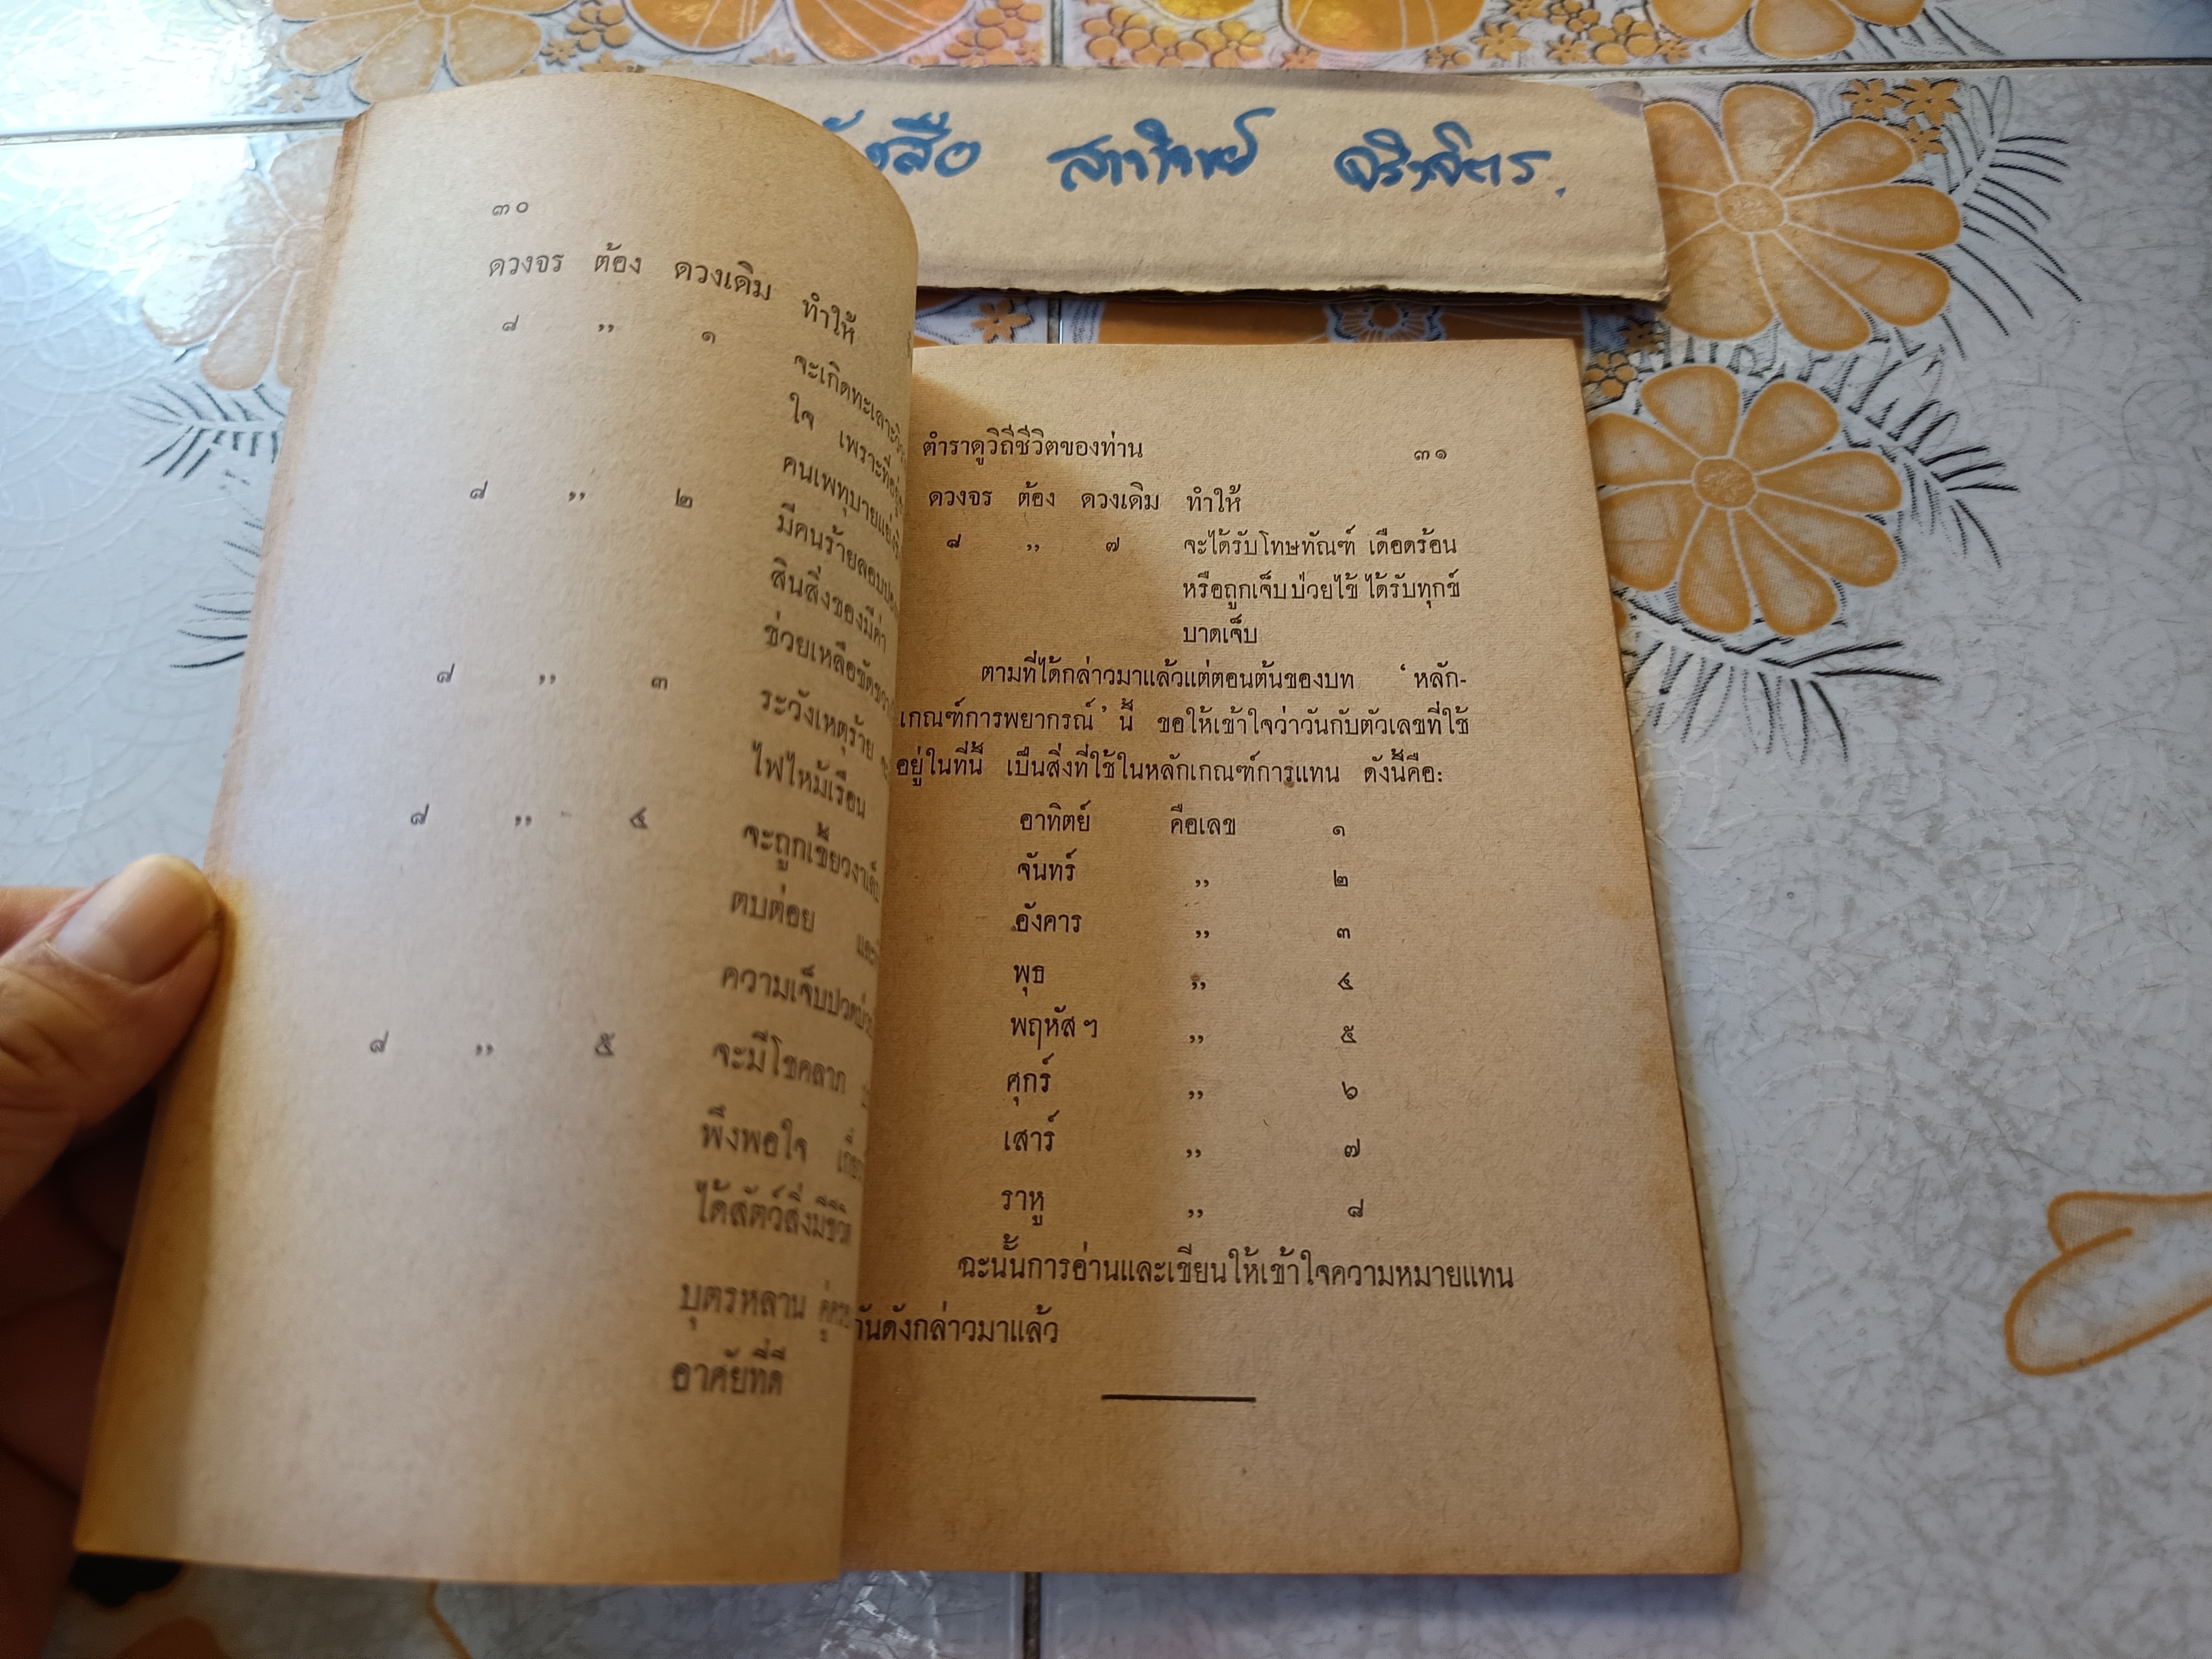 สือ
๓๐
ดวงจร ต้อง ดวงเดิม ทำให้
๘ ,, ๑ จะเกิดทะเลาะ
ใจ เพราะที่
มีคนร้ายลอบ
๘ ,, ๒
สินสิ่งของมีค่า
ช่วยเหลือ
๘ ,, ๓ ระวังเหตุร้าย
ไฟไหม้เรือน
๘ ,, ๔ จะถูกเขี้ยวงา
ตบต่อย และ
ความเจ็บปวด
๘ ,, ๕ จะมีโชคลาภ
พึงพอใจ
ได้สัตว์สิ่งมีชีวิต
บุตรหลาน
อาศัยที่ดี
ตำราดูวิถีชีวิตของท่าน ๓๑
ดวงจร ต้อง ดวงเดิม ทำให้
๘ ,, ๗ จะได้รับโทษทัณฑ์ เดือดร้อน
หรือถูกเจ็บป่วยไข้ ได้รับทุกข์
บาดเจ็บ
ตามที่ได้กล่าวมาแล้วแต่ตอนต้นของบท ‘หลัก-
เกณฑ์การพยากรณ์’ นี้ ขอให้เข้าใจว่าวันกับตัวเลขที่ใช้
อยู่ในที่นี้ เป็นสิ่งที่ใช้ในหลักเกณฑ์การแทน ดังนี้คือ:
อาทิตย์ คือเลข ๑
จันทร์ ,, ๒
อังคาร ,, ๓
พุธ ,, ๔
พฤหัสฯ ,, ๕
ศุกร์ ,, ๖
เสาร์ ,, ๗
ราหู ,, ๘
ฉะนั้นการอ่านและเขียนให้เข้าใจความหมายแทน
กันดังกล่าวมาแล้ว